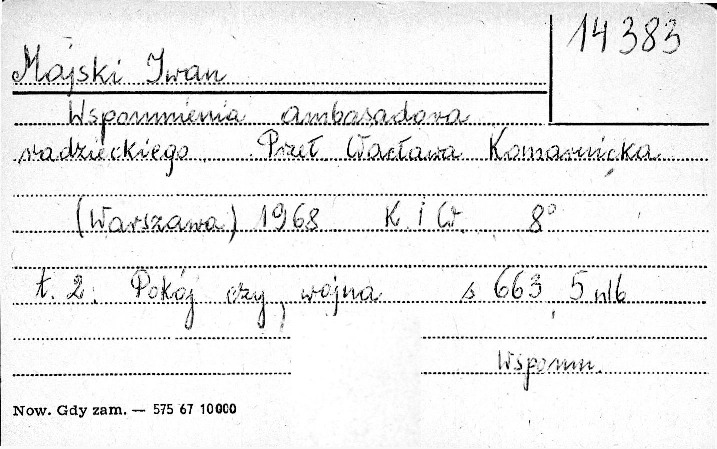 14383
Majski Iwan
Wspomnienia ambasadora
radzieckiego. Przeł. Wacława Komarnicka
(Warszawa) 1968 K i W. 8°
t. 2. Pokój czy wojna s 663, 5 nlb
Wspomn.
Now. Gdy zam. — 575 67 10000